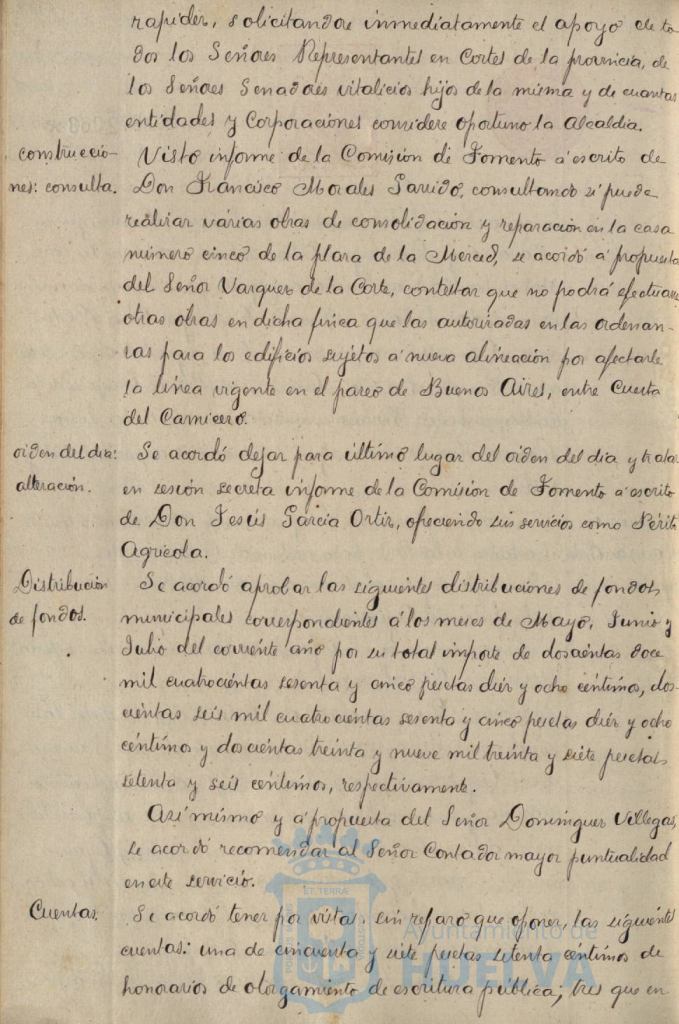 rapidez, solicitandose inmediatamente el apoyo de to-
dos los Señores Representantes en Cortes de la provincia, de
los Señores Senadores vitalicios hijos de la misma y de cuantas
entidades y Corporaciones considere oportuno la Alcaldia.
construccio-
nes: consulta.
Visto informe de la Comision de Fomento á escrito de
Don Francisco Morales Garrido, consultando si puede
realizar várias obras de consolidación y reparación en la casa
número cinco de la plaza de la Merced, se acordó á propuesta
del Señor Vazquez de la Corte, contestar que no podrá efectuarse
otras obras en dicha finca que las autorizadas en las ordenan-
zas para los edificios sujetos á nueva alineación por afectarle
la linea vigente en el paseo de Buenos Aires, entre Cuesta
del Carnicero.
orden del dia:
alteración.
Se acordó dejar para último lugar del orden del dia y tratar
en sesión secreta informe de la Comision de Fomento á escrito
de Don Jesús Garcia Ortiz, ofreciendo sus servicios como Périto
Agricola.
Distribución
de fondos.
Se acordó aprobar las siguientes distribuciones de fondos
municipales correspondientes á los meses de Mayo, Junio y
Julio del corriente año por su total importe de doscientas doce
mil cuatrocientas sesenta y cinco pesetas diez y ocho céntimos, dos-
cientas seis mil cuatrocientas sesenta y cinco pesetas diez y ocho
céntimos y doscientas treinta y nueve mil treinta y siete pesetas
setenta y seis céntimos, respectivamente.
Asi mismo y á propuesta del Señor Dominguez Villegas,
se acordó recomendar al Señor Contador mayor puntualidad
en este servicio.
Cuentas.
Se acordó tener por vistas, sin reparo que oponer, las siguientes
cuentas: una de cincuenta y siete pesetas setenta céntimos de
honorarios de otorgamiento de escritura pública; tres que en
ET TERRÆ
Ayuntamiento de
HUELVA